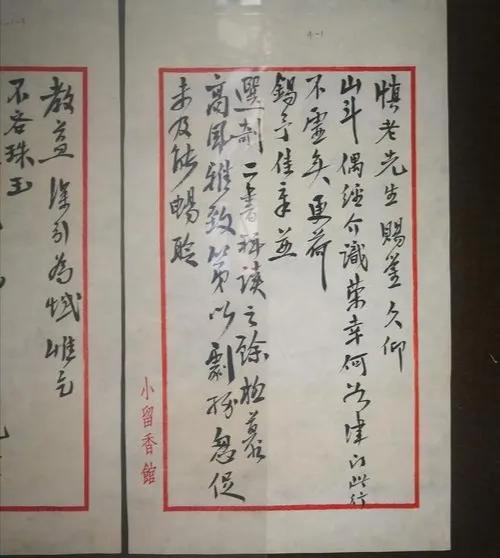 慎老先生賜鑒久仰
山斗偶經介識榮幸何如津門此行
不虛矣更荷
錫予佳章並
選劇二書拜讀之餘極慕
高風雅致第以劇務怱促
未及能暢聆
小留香館
教益深引為憾惟乞
不吝珠玉